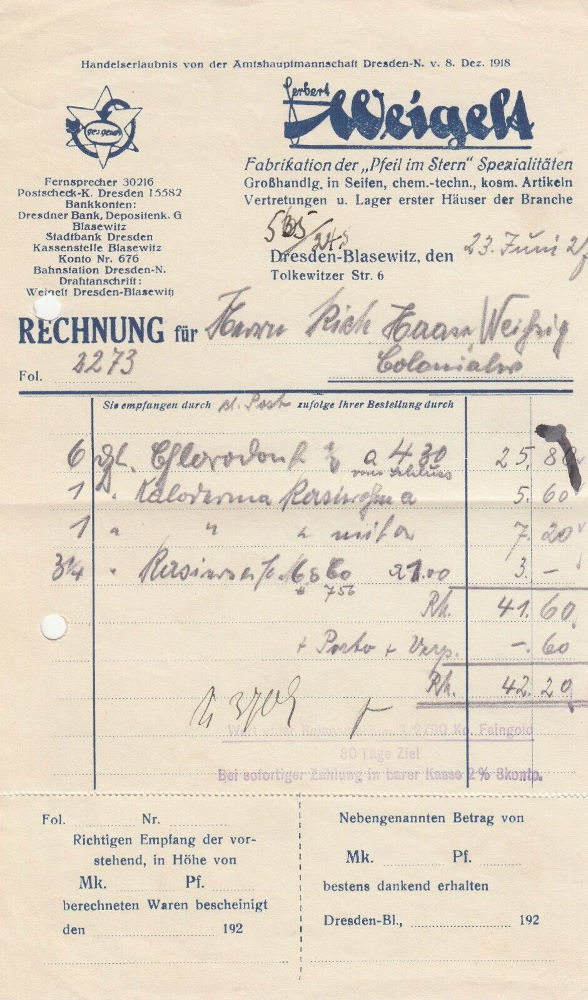 Handelserlaubnis von der Amtshauptmannschaft Dresden-N. v. 8. Dez. 1918
ges. gesch.
Herbert
Weigelt
Fabrikation der „Pfeil im Stern“ Spezialitäten
Großhandlg. in Seifen, chem.-techn., kosm. Artikeln
Vertretungen u. Lager erster Häuser der Branche
Fernsprecher 30216
Postscheck-K. Dresden 15582
Bankkonten:
Dresdner Bank, Depositenk. G
Blasewitz
Stadtbank Dresden
Kassenstelle Blasewitz
Konto Nr. 676
Bahnstation Dresden-N.
Drahtanschrift:
Weigelt Dresden-Blasewitz
Dresden-Blasewitz, den 23. Juni
Tolkewitzer Str. 6
RECHNUNG für Herrn Rich Haase, Weißig
Colonialw
Fol. 2273
Sie empfangen durch d. Post zufolge Ihrer Bestellung durch
6 Dz. Chlorodont a 4.30 25.80
1 " Kaloderma 5.60
1 " " " mitta 7.20
3/4 " 3.–
Rm. 41.60
+ Porto + Verp. –.60
Rm. 42.20
1/2790 Kg. Feingold
30 Tage Ziel
Bei sofortiger Zahlung in barer Kasse 2% Skonto.
Fol. Nr.
Richtigen Empfang der vor-
stehend, in Höhe von
Mk. Pf.
berechneten Waren bescheinigt
den 192
Nebengenannten Betrag von
Mk. Pf.
bestens dankend erhalten
Dresden-Bl., 192